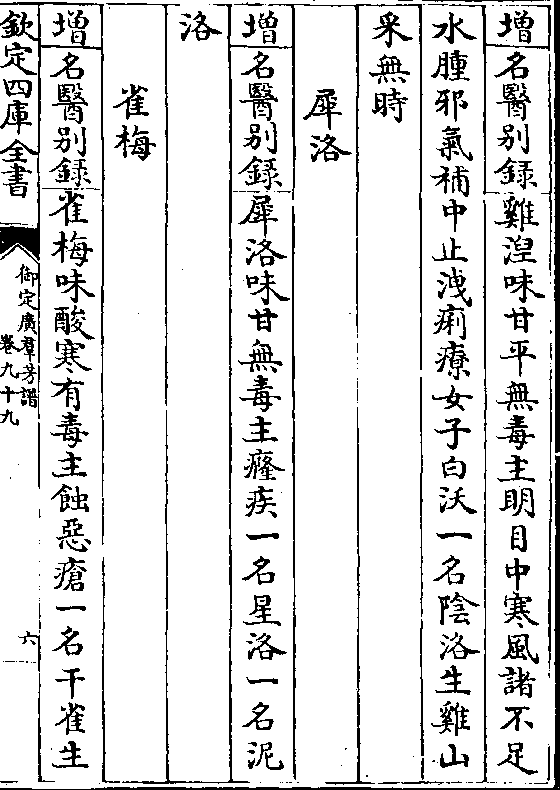 增名醫别録雞涅味甘平無毒主明目中寒風諸不足
水腫邪氣補中止洩痢療女子白沃一名陰洛生雞山
采無時
犀洛
增名醫别録犀洛味甘無毒主癃疾一名星洛一名泥
洛
雀梅
增名醫别録雀梅味酸寒有毒主蝕惡瘡一名千雀生
欽定四庫全書
御定廣羣芳譜
卷九十九
六